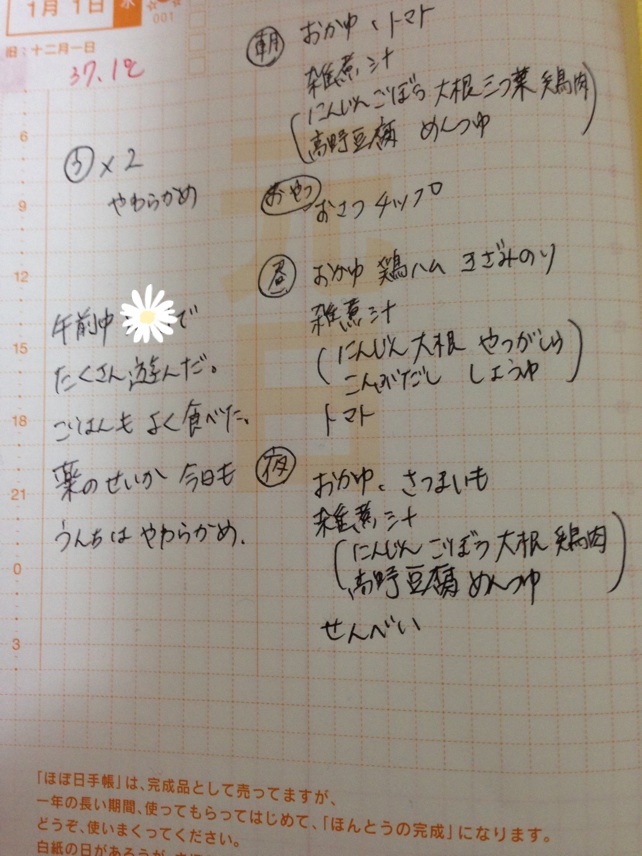 1月 1日 水
001
旧:十二月一日
37.1℃
6
9
12
15
18
21
0
3
う×2
やわらかめ
午前中 で
たくさん遊んだ。
ごはんも よく食べた。
薬のせいか 今日も
うんちは やわらかめ.
朝 おかゆ、トマト
雑煮汁
(にんじん ごぼう 大根 三つ葉 鶏肉
高野豆腐 めんつゆ)
おやつ おさつチップ
昼 おかゆ 鶏ハム きざみのり
雑煮汁
(にんじん 大根 やつがしら
こんぶだし しょうゆ)
トマト
夜 おかゆ、さつまいも
雑煮汁
(にんじん ごぼう 大根 鶏肉
高野豆腐 めんつゆ)
せんべい
「ほぼ日手帳」は、完成品として売ってますが、
一年の長い期間、使ってもらってはじめて、「ほんとうの完成」になります。
どうぞ、使いまくってください。
白紙の日があろうが、